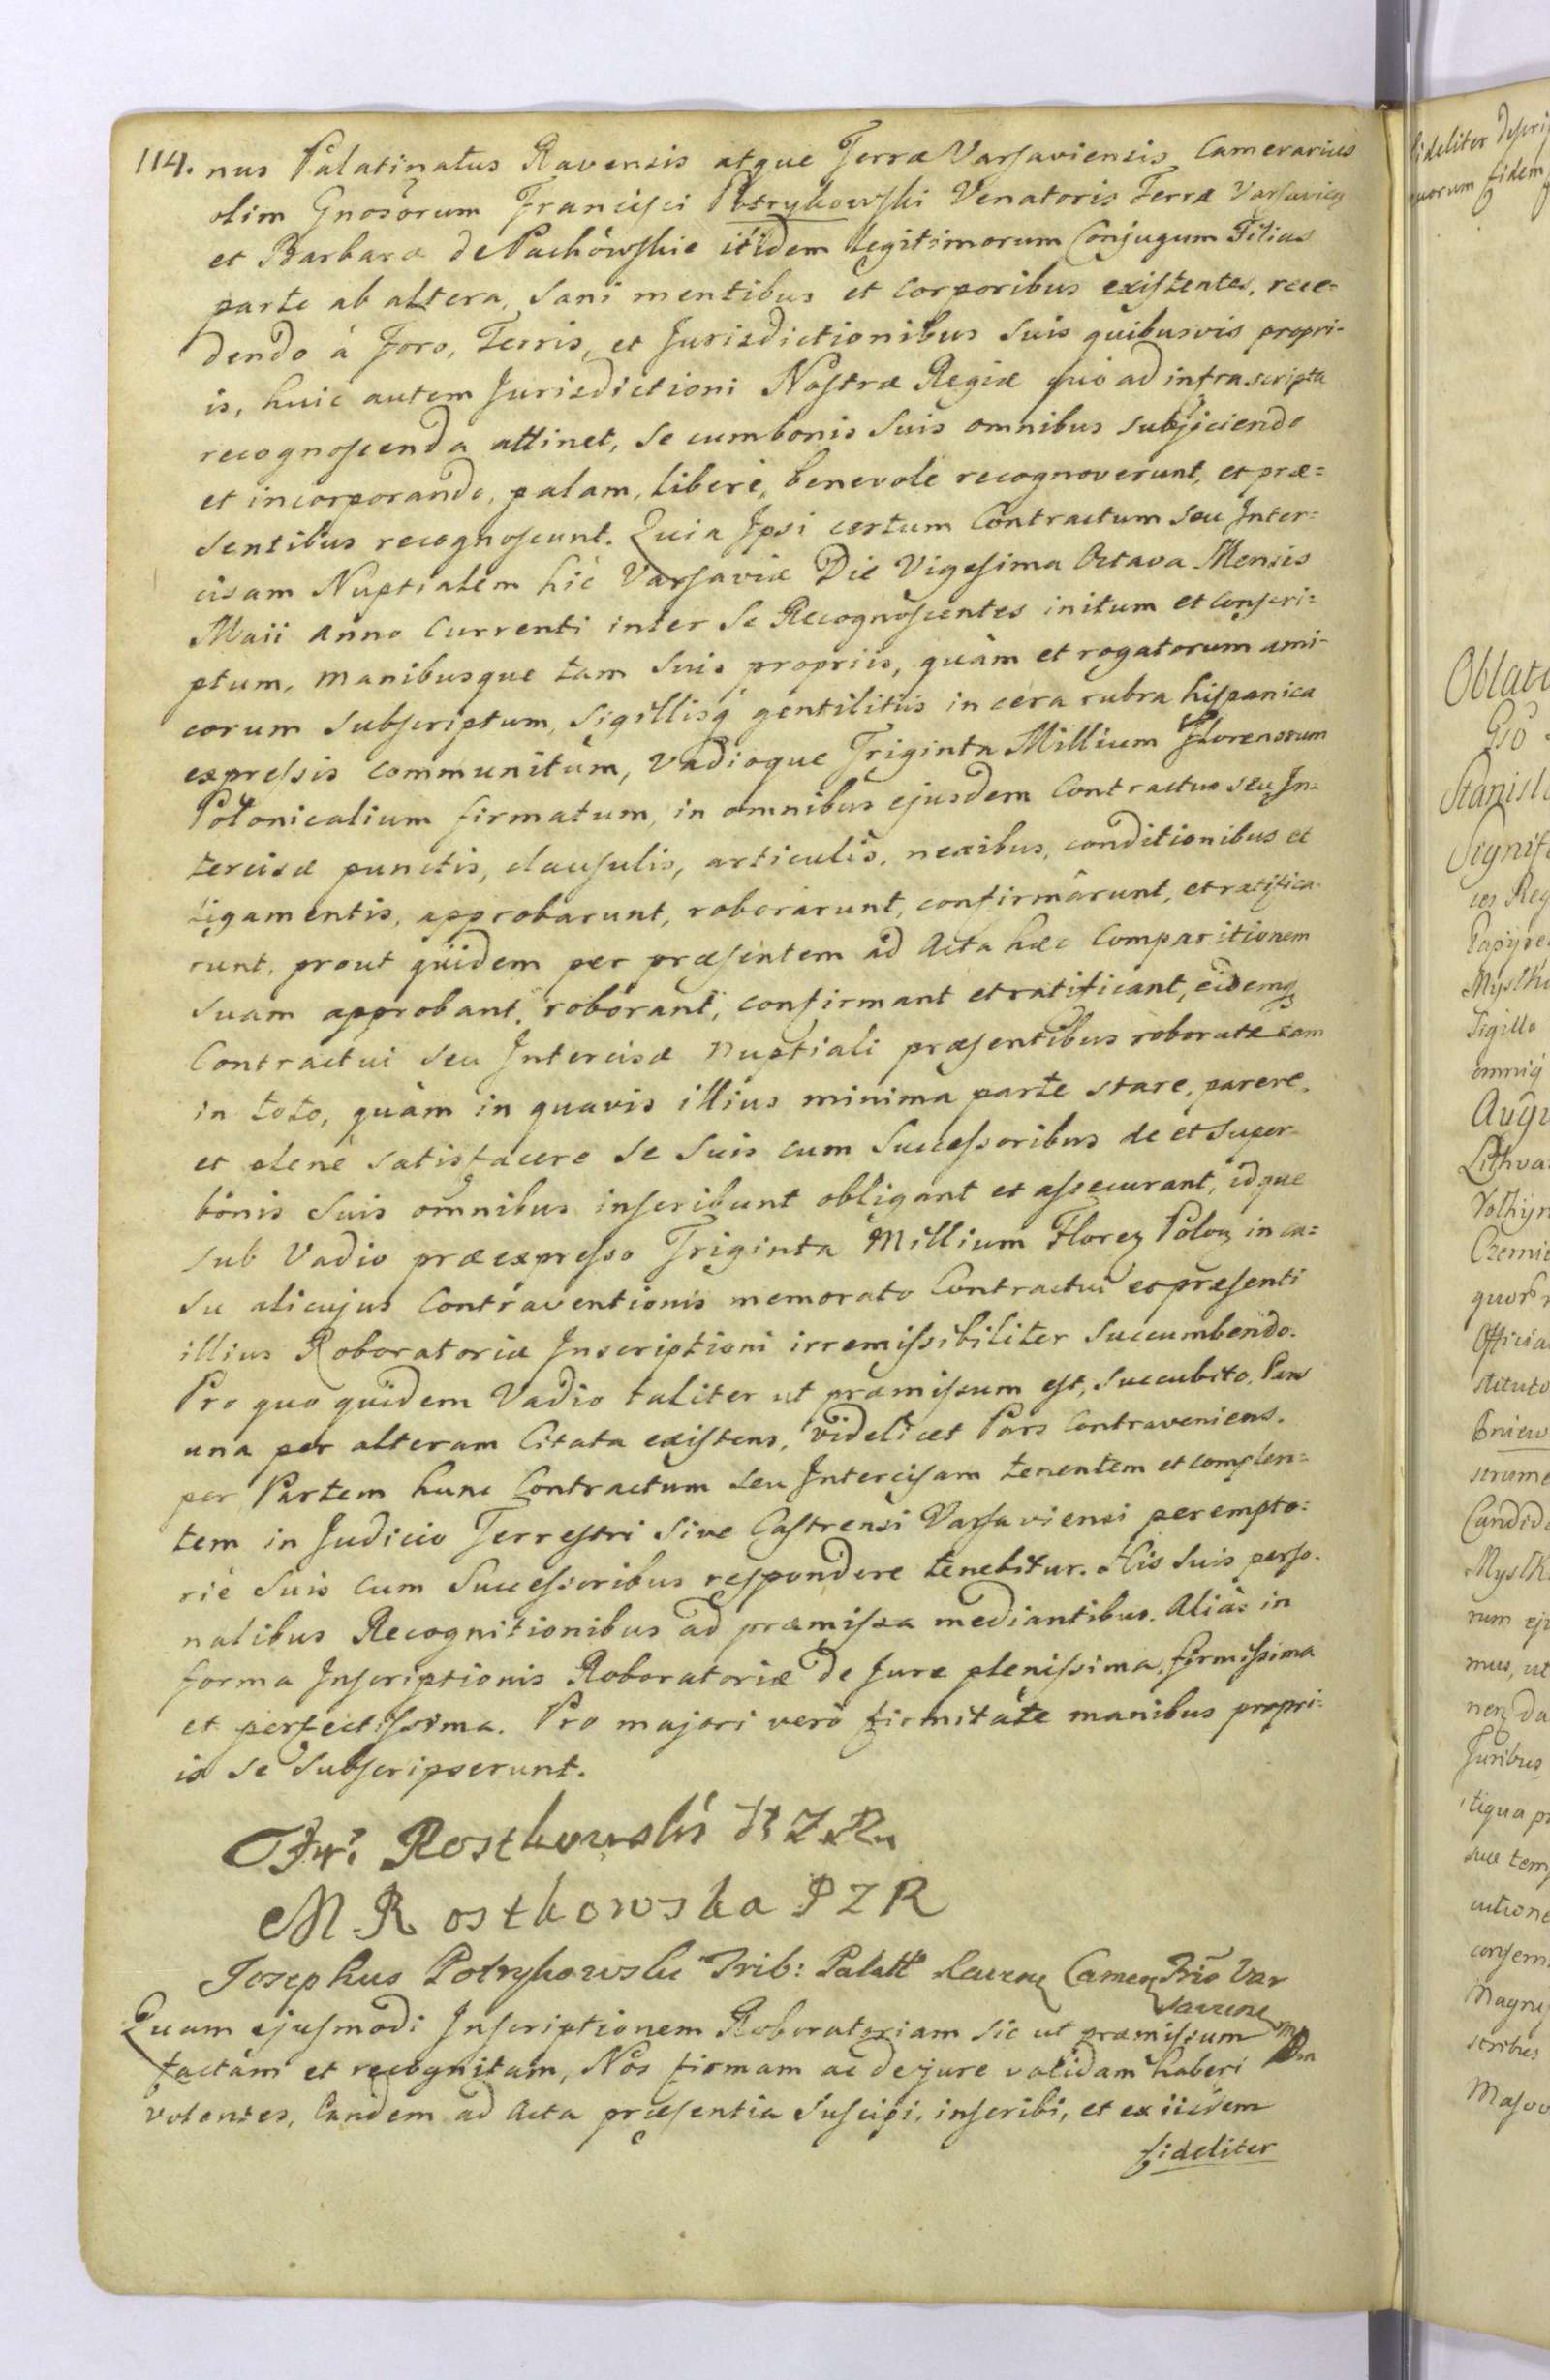 114. nus Palatinatus Ravensis atque Terræ Varsaviensis Camerarius
olim Gnosorum Francisci Potrykowski Venatoris Terræ
et Barbaræ de Pachówskie itidem legitimorum Conjugum Filius
parte ab altera, Sani mentibus et Corporibus existentes, rece-
dendo à Foro, Terris, et Jurisdictionibus Suis quibusvis propri-
is, huic autem Jurisdictioni Nostræ Regiæ quo ad infrascripta
recognoscenda attinet, se cum bonis Suis omnibus subjiciendo
et incorporando, palam, liberè, benevole recognoverunt, et præ=
sentibus recognoscunt. Quia Ipsi certum Contractum seu Inter=
cisam Nuptialem hic Varsaviæ Die Vigesima Octava Mensis
Maii Anno Currenti inter Se Recognoscentes initum et conscri=
ptum, manibusque tam Suis propriis, quàm et rogatorum ami-
corum subscriptum, sigillisq gentilitiis in cera rubra hispanica
expressis communitum, Vadioque Triginta Millium Florenorum
Polonicalium firmatum, in omnibus ejusdem Contractus seu In=
tercisæ punctis, clausulis, articulis, nexibus, conditionibus et
Ligamentis, approbarunt, roborarunt, confirmârunt, et ratifica-
runt, prout quidem per præsentem ad Acta hæc Comparitionem
suam approbant, roborant, confirmant et ratificant, eidemq
Contractui seu Intercisæ nuptiali præsentibus roboratæ tam
in toto, quàm in quavis illius minima parte stare, parere,
et plenè satisfacere se Suis cum Successoribus de et super
bonis Suis omnibus inscribunt obligant et assecurant, idque
sub Vadio præexpresso Triginta Millium Floren Polon in ca=
su alicujus Contraventionis memorato Contractui et præsenti
illius Roboratoriæ Inscriptioni irremissibiliter Succumbendo.
Pro quo quidem Vadio taliter ut præmissum est, succubito, Pars
una per alteram Citata existens, videlicet Pars Contraveniens.
per Partem hunc Contractum seu Intercisam tenentem et complen=
tem in Judicio Terrestri Sive Castrensi Varsaviensi perempto=
riè Suis cum Successoribus respondere tenebitur. His Suis perso-
nalibus Recognitionibus ad præmissa mediantibus. Aliàs in
forma Inscriptionis Roboratoriæ de Jure plenissima, firmissima
et perfectissima. Pro majori verò firmitate manibus propri-
is se Subscripserunt.
Rostkowski
M Rostkowska P Z R
Josephus Potrykowski Trib: Palatt
Quam ejusmodi Inscriptionem Roboratoriam sic ut præmissum
factam et recognitam, Nos firmam ac de jure validam haberi
volentes, Eandem ad Acta præsentia Suscipi, inscribi, et ex iisdem
fideliter